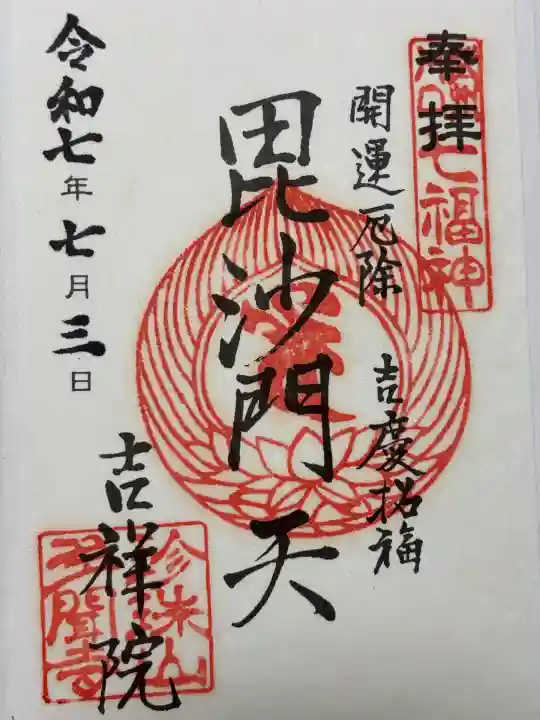 奉拝
七福神
開運厄除
吉慶招福
毘沙門天
令和七年七月三日
吉祥院
珍珠山
多聞寺